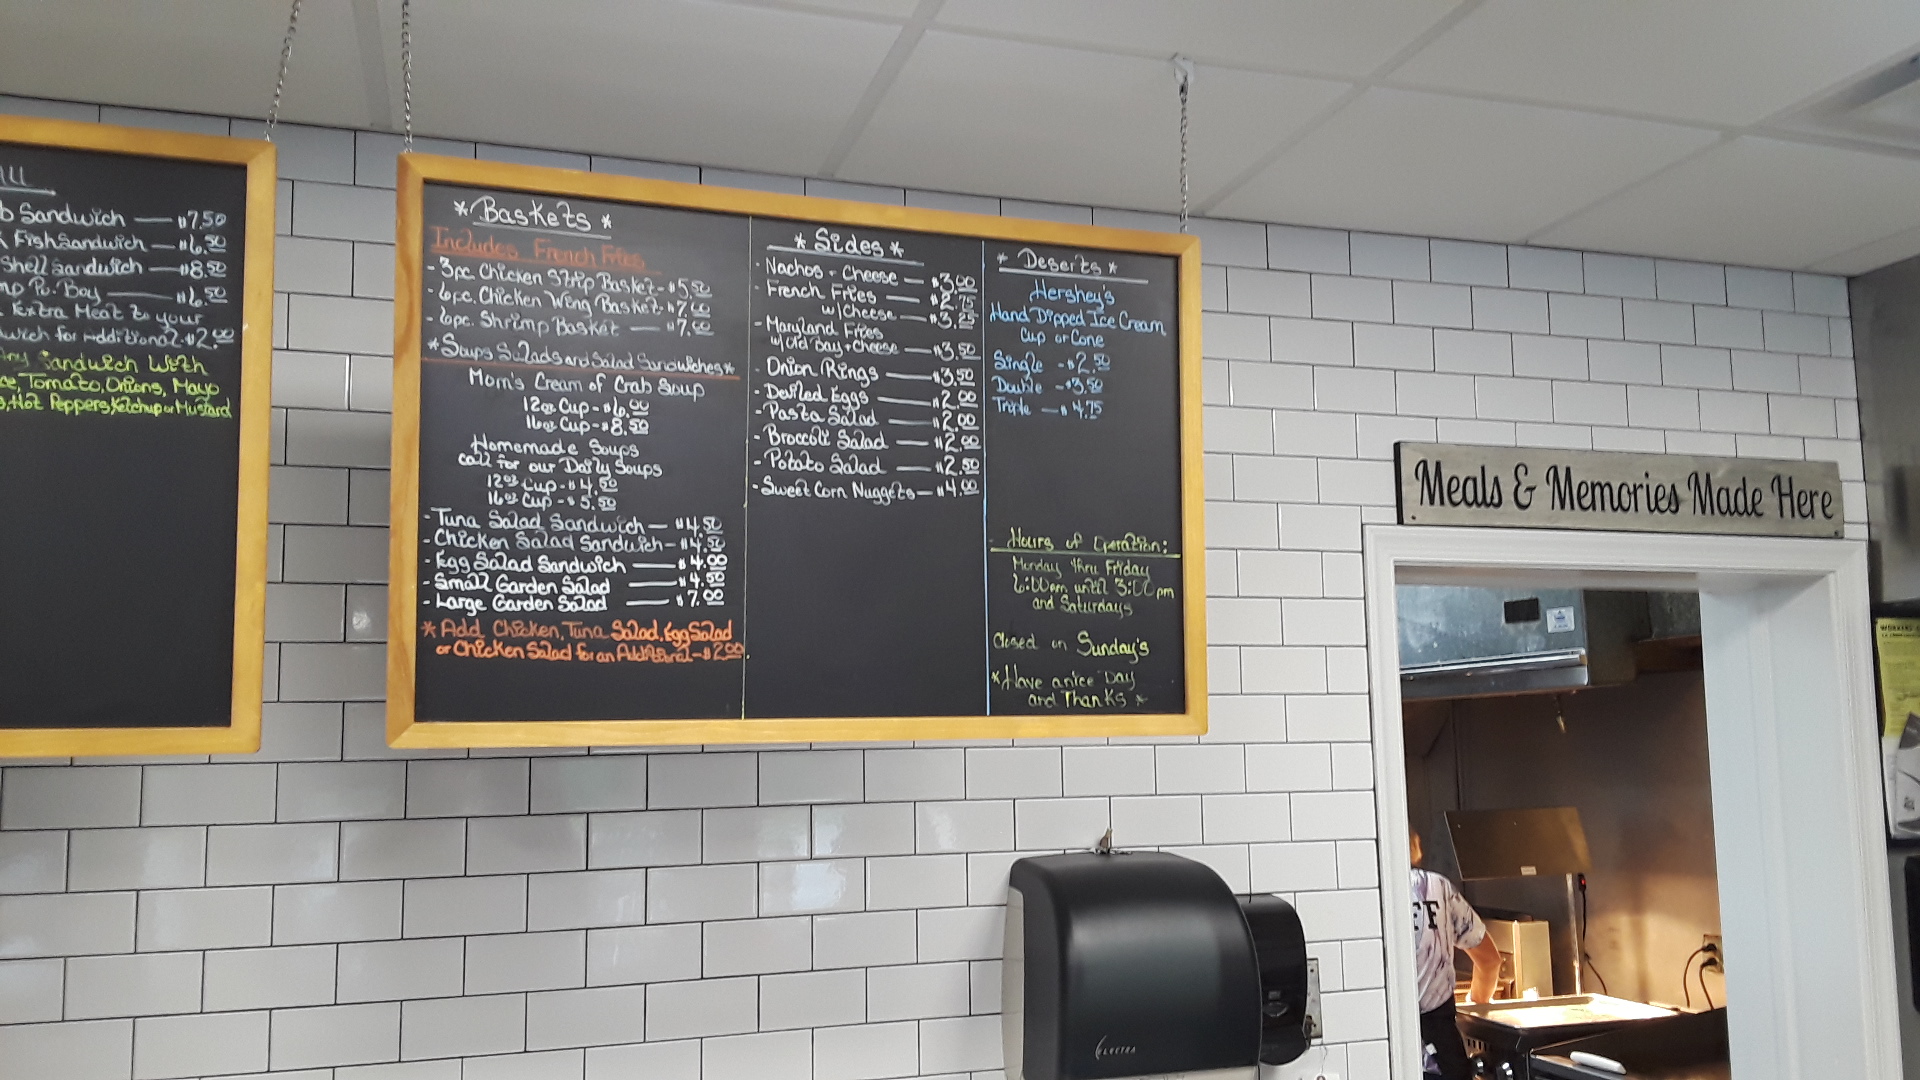 Sandwich — $7.50
Fish Sandwich — $6.50
Shell Sandwich — $8.50
Po. Boy — $6.50
Extra Meat to your
for Additional - $2.00
Sandwich With
Tomato, Onions, Mayo
Hot Peppers, Ketchup or Mustard
* Baskets *
Includes French Fries
- 3pc. Chicken Strip Basket - $5.50
- 6pc. Chicken Wing Basket - $7.00
- 6pc. Shrimp Basket — $7.00
* Soups Salads and Salad Sandwiches *
Mom's Cream of Crab Soup
12oz Cup - $6.00
16oz Cup - $8.50
Homemade Soups
call for our Daily Soups
12oz Cup - $4.50
16oz Cup - $5.50
- Tuna Salad Sandwich — $4.50
- Chicken Salad Sandwich - $4.50
- Egg Salad Sandwich — $4.00
- Small Garden Salad — $4.50
- Large Garden Salad — $7.00
* Add Chicken, Tuna Salad, Egg Salad
or Chicken Salad for an Additional - $2.00
* Sides *
- Nachos - Cheese — $3.00
- French Fries — $2.75
w/cheese — $3.25
- Maryland Fries
w/old bay + cheese — $3.50
- Onion Rings — $3.50
- Deviled Eggs — $2.00
- Pasta Salad — $2.00
- Broccoli Salad — $2.00
- Potato Salad — $2.50
- Sweet Corn Nuggets — $4.00
* Deserts *
Hershey's
Hand Dipped Ice Cream
Cup or Cone
Single - $2.50
Double - $3.50
Triple — $4.75
- Hours of Operation:
Monday thru Friday
6:00am until 3:00pm
and Saturdays
Closed on Sunday's
* Have a nice Day
and Thanks *
Meals & Memories Made Here
ELECTRA